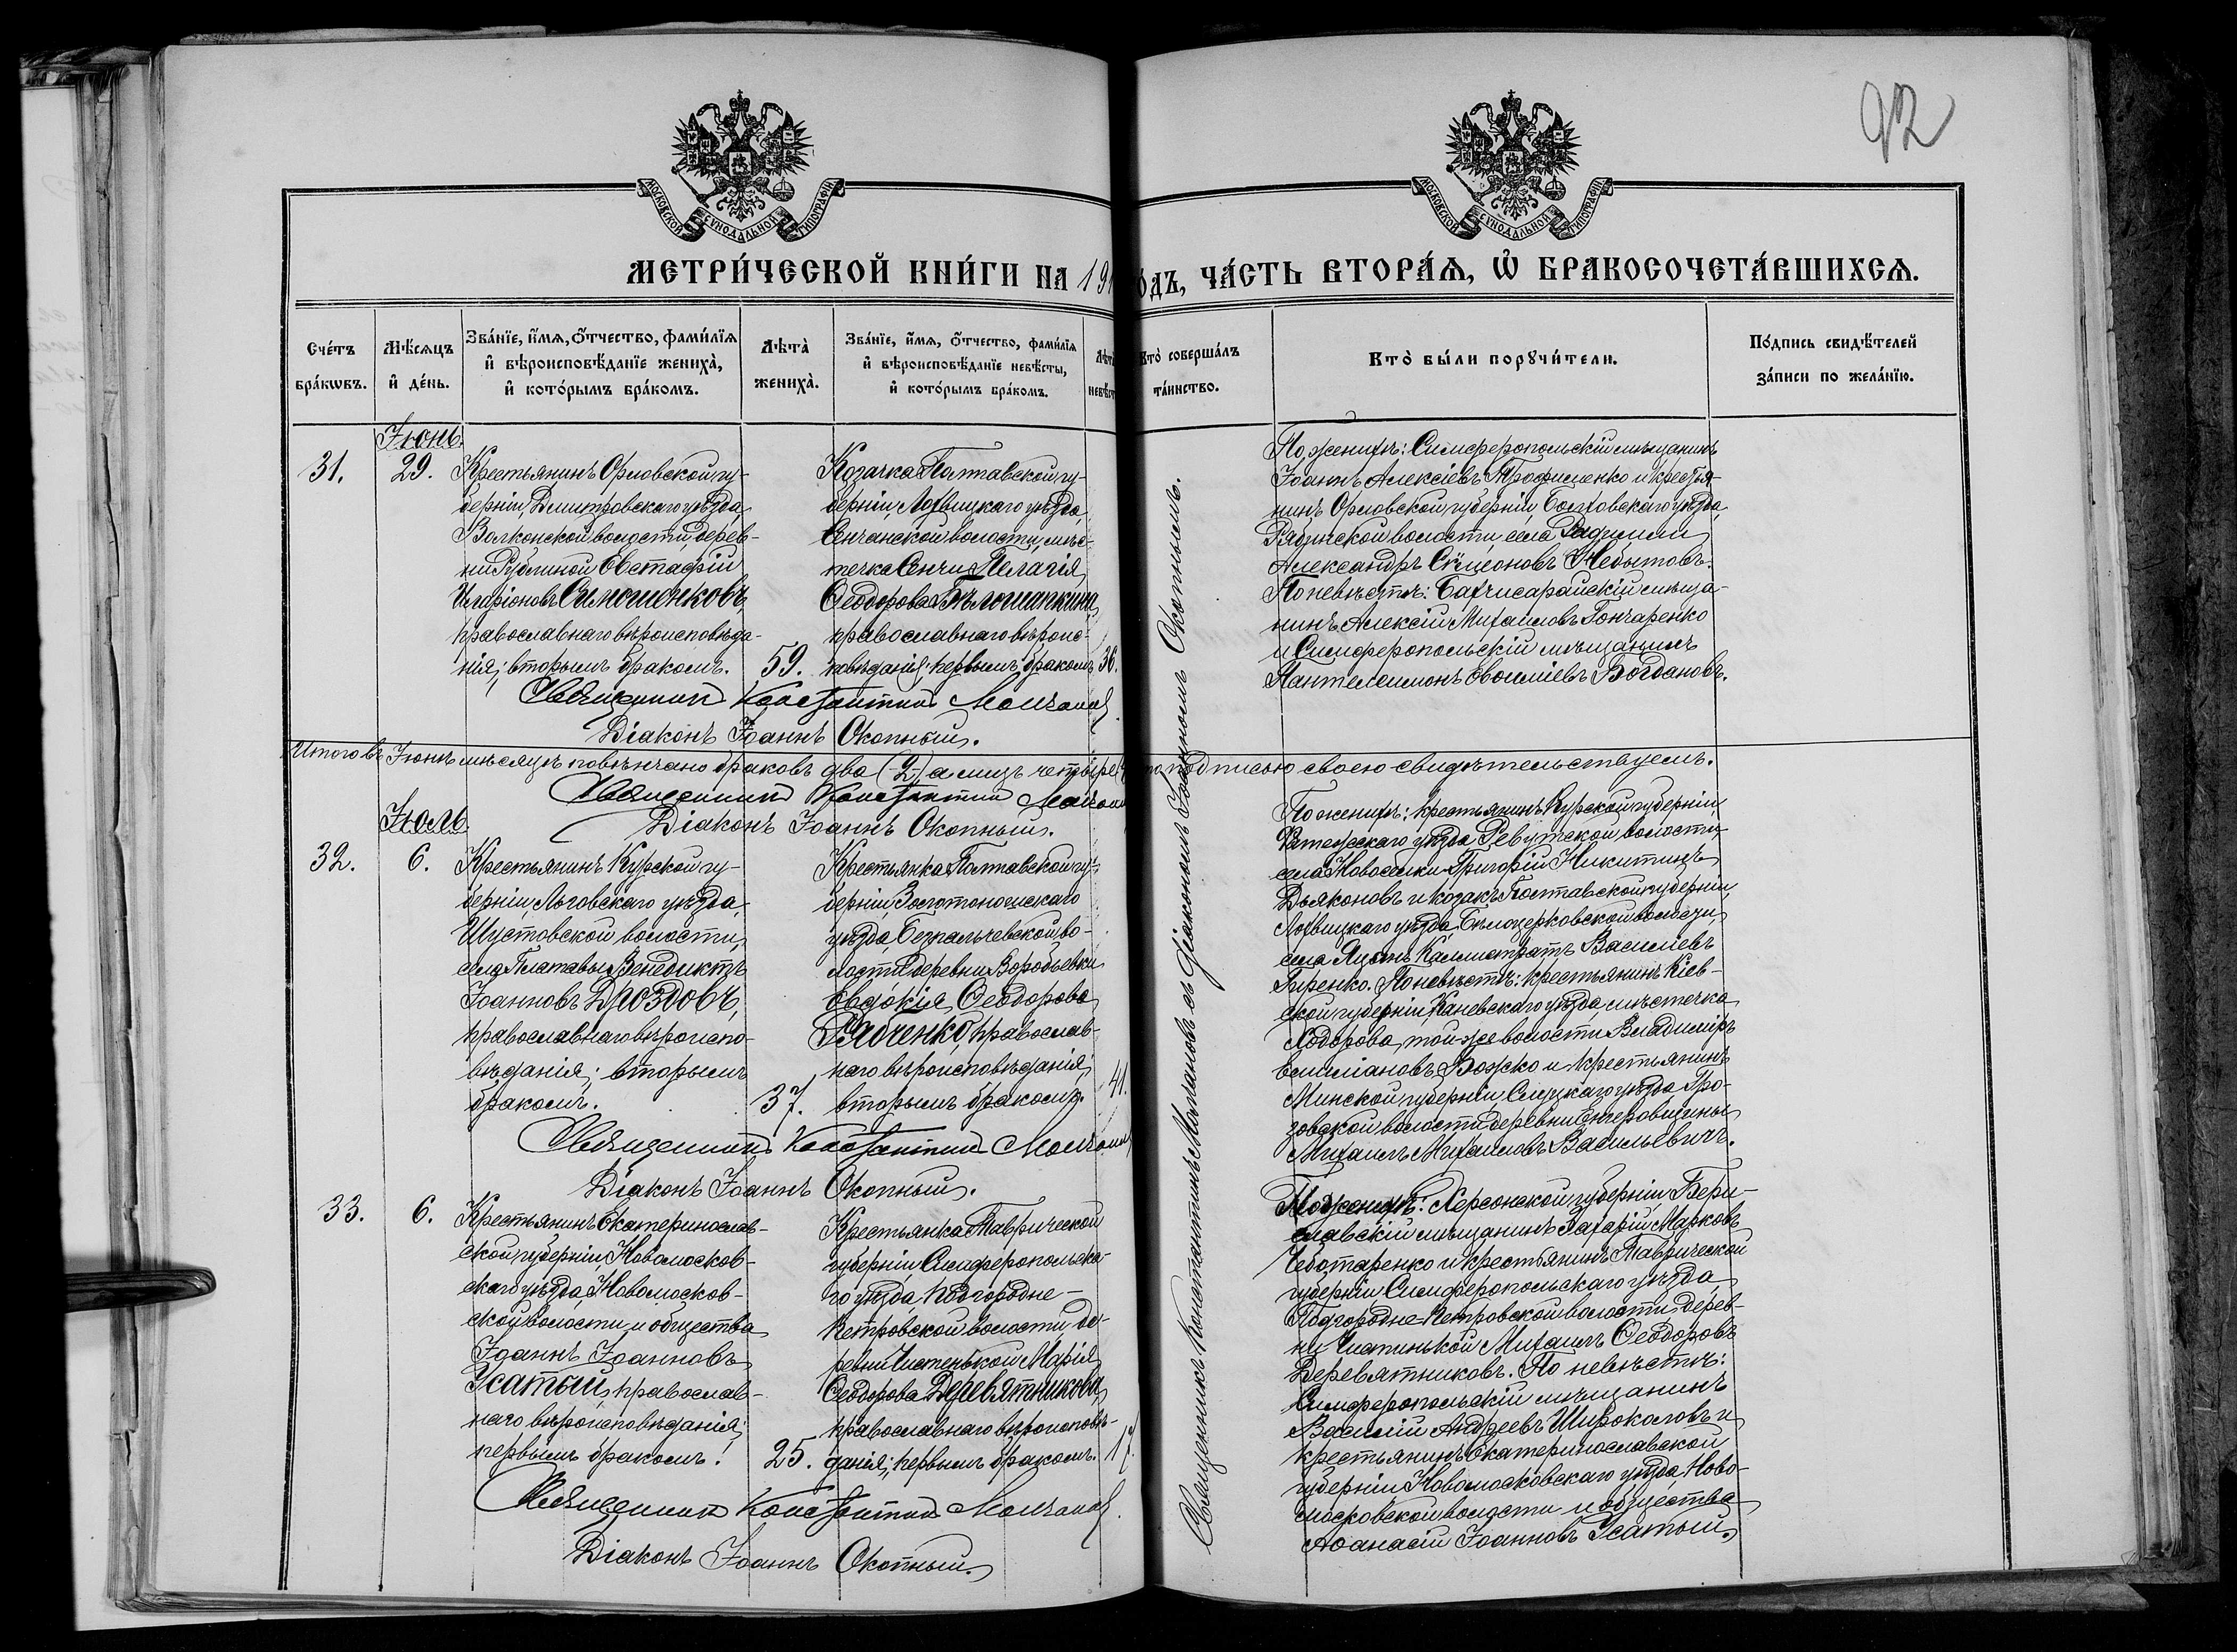 92
МОСКОВСКОЙ СѴНОДАЛЬНОЙ ТИПОГРАФІИ
МОСКОВСКОЙ СѴНОДАЛЬНОЙ ТИПОГРАФІИ
МЕТРИ́ЧЕСКОЙ КНИ́ГИ НА 191
О́ДЪ, ЧА́СТЬ ВТОРА́Ѧ, Ѡ҆ БРАКОСОЧЕТА́ВШИХСѦ.
Сче́тъ бра́кѡвъ.
Мѣ́сѧцъ и҆ де́нь.
Зва́нїе, и҆́мѧ, ѻ҆́тчество, фами́лїѧ
и҆ вѣроисповѣ́данїе жениха̀,
и҆ кото́рымъ бра́комъ.
Лѣта̀ жениха̀.
Зва́нїе, и҆́мѧ, ѻ҆́тчество, фами́лїѧ
и҆ вѣроисповѣ́данїе невѣ́сты,
и҆ кото́рымъ бра́комъ.
Кто̀ соверша́лъ
та́инство.
Кто̀ бы́ли порꙋчи́тели.
По́дпись свидѣ́телей
за́писи по жела́нїю.
Іюнь.
31.
29.
Крестьянинъ Орловской гу-
берніи, Дмитровскаго уѣзда,
Волконской волости, дерев-
ни Рублиной Евстафій
Иларіоновъ Симошенковъ,
православнаго вѣроисповѣда-
нія; вторымъ бракомъ.
59.
Козачка Полтавской гу-
берніи, Лохвицкаго уѣзда,
Сенчанской волости, мѣс-
течка Сенчи Пелагія
Ѳеодорова Бѣлошапкина,
православнаго вѣроис-
повѣданія; первымъ бракомъ
36.
По женихѣ: Симферопольскій мѣщанинъ
Іоаннъ Алексіевъ Трофименко и крестья-
нинъ Орловской губерніи, Болховскаго уѣзда,
волости, села
Александръ Симеоновъ Небытовъ.
По невѣстѣ: Бахчисарайскій мѣща-
нинъ Алексій Михаиловъ Гончаренко
и Симферопольскій мѣщанинъ
Пантелеимонъ Евѳиміевъ Богдановъ.
Священникъ Константинъ Молчановъ
Діаконъ Іоаннъ Окопный.
Итого въ Іюнѣ мѣсяцѣ повѣнчано браковъ два (2) а лицъ четыре
подписью своею свидѣтельствуемъ.
Священникъ Константинъ Молчановъ
Діаконъ Іоаннъ Окопный.
Іюль
32.
6.
Крестьянинъ Курской гу-
берніи, Льговскаго уѣзда,
Шустовской волости,
села Платавы Венедиктъ
Іоанновъ Дроздовъ,
православнаго вѣроиспо-
вѣданія; вторымъ
бракомъ.
37.
Крестьянка Полтавской гу-
берніи, Золотоношскаго
уѣзда, Безпальчевской во-
лости деревни Воробьевки
Евдокія Ѳеодорова
Рябченко, православ-
наго вѣроисповѣданія;
вторымъ бракомъ.
41.
По женихѣ: крестьянинъ Курской губерніи,
Фатежскаго уѣзда, Ревутской волости,
села Новоселки Григорій Никитинъ
Дьяконовъ и козакъ Полтавской губерніи,
Лохвицкаго уѣзда, Бѣлоцерковской волости,
села Каллистратъ Василіевъ
Гиренко. По невѣстѣ: крестьянинъ Кіев-
ской губерніи, Каневскаго уѣзда, мѣстечка
Ходорова, той-же волости Владиміръ
Емиліановъ Божко и крестьянинъ
Минской губерніи, Слуцкаго уѣзда Гро-
зовской волости деревни
Михаилъ Михаиловъ Васильевичъ.
Священникъ Константинъ Молчановъ
Діаконъ Іоаннъ Окопный.
33.
6.
Крестьянинъ Екатеринослав-
ской губерніи, Новомосков-
скаго уѣзда, Новомосков-
ской волости и общества
Іоаннъ Іоанновъ
Усатый, православ-
наго вѣроисповѣданія;
первымъ бракомъ.
25.
Крестьянка Таврической
губерніи, Симферопольска-
го уѣзда, Подгородне-
Петровской волости, де-
ревни Чистенькой Марія
Ѳеодорова Деревятникова,
православнаго вѣроисповѣ-
данія; первымъ бракомъ.
17.
По женихѣ: Херсонской губерніи, Бери-
славскій мѣщанинъ Захарій Марковъ
Чеботаренко и крестьянинъ Таврической
губерніи Симферопольскаго уѣзда,
Подгородне-Петровской волости дерев-
ни Чистинькой Михаилъ Ѳеодоровъ
Деревятниковъ. По невѣстѣ:
Симферопольскій мѣщанинъ
Василій Андреевъ Широколовъ и
крестьянинъ Екатеринославской
губерніи Новомосковскаго уѣзда, Ново-
московской волости и общества
Аѳанасій Іоанновъ Усатый.
Священникъ Константинъ Молчановъ
Діаконъ Іоаннъ Окопный.
Священникъ Константинъ Молчановъ съ Діакономъ Іоанномъ Окопнымъ.